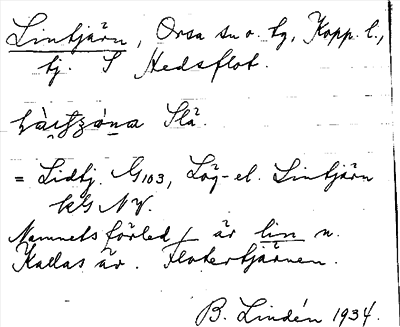 Lintjärn, Orsa sn o. tg, Kopp. l.,
tj. S Hedsflot.
Slä.
= Lidtj. G103, Lög- el. Lintjärn
kG NV.
Namnets förled är lin n.
Kallas är. Flotertjärnen.
B. Lindén 1934.